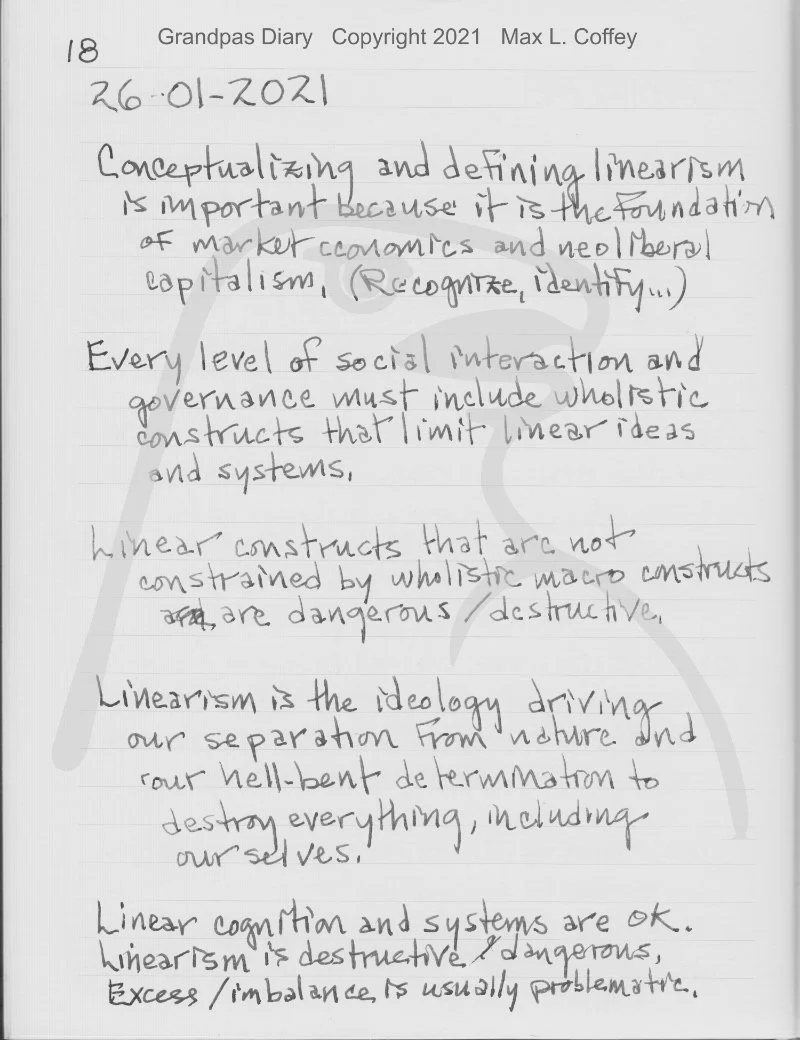 Grandpas Diary Copyright 2021 Max L. Coffey
18
26-01-2021
Conceptualizing and defining linearism
is important because it is the foundation
of market economics and neoliberal
capitalism. (Recognize, identify...)
Every level of social interaction and
governance must include wholistic
constructs that limit linear ideas
and systems.
Linear constructs that are not
constrained by wholistic macro constructs
are dangerous / destructive.
Linearism is the ideology driving
our separation from nature and
our hell-bent determination to
destroy everything, including
ourselves.
Linear cognition and systems are OK.
Linearism is destructive & dangerous.
Excess / imbalance is usually problematic.